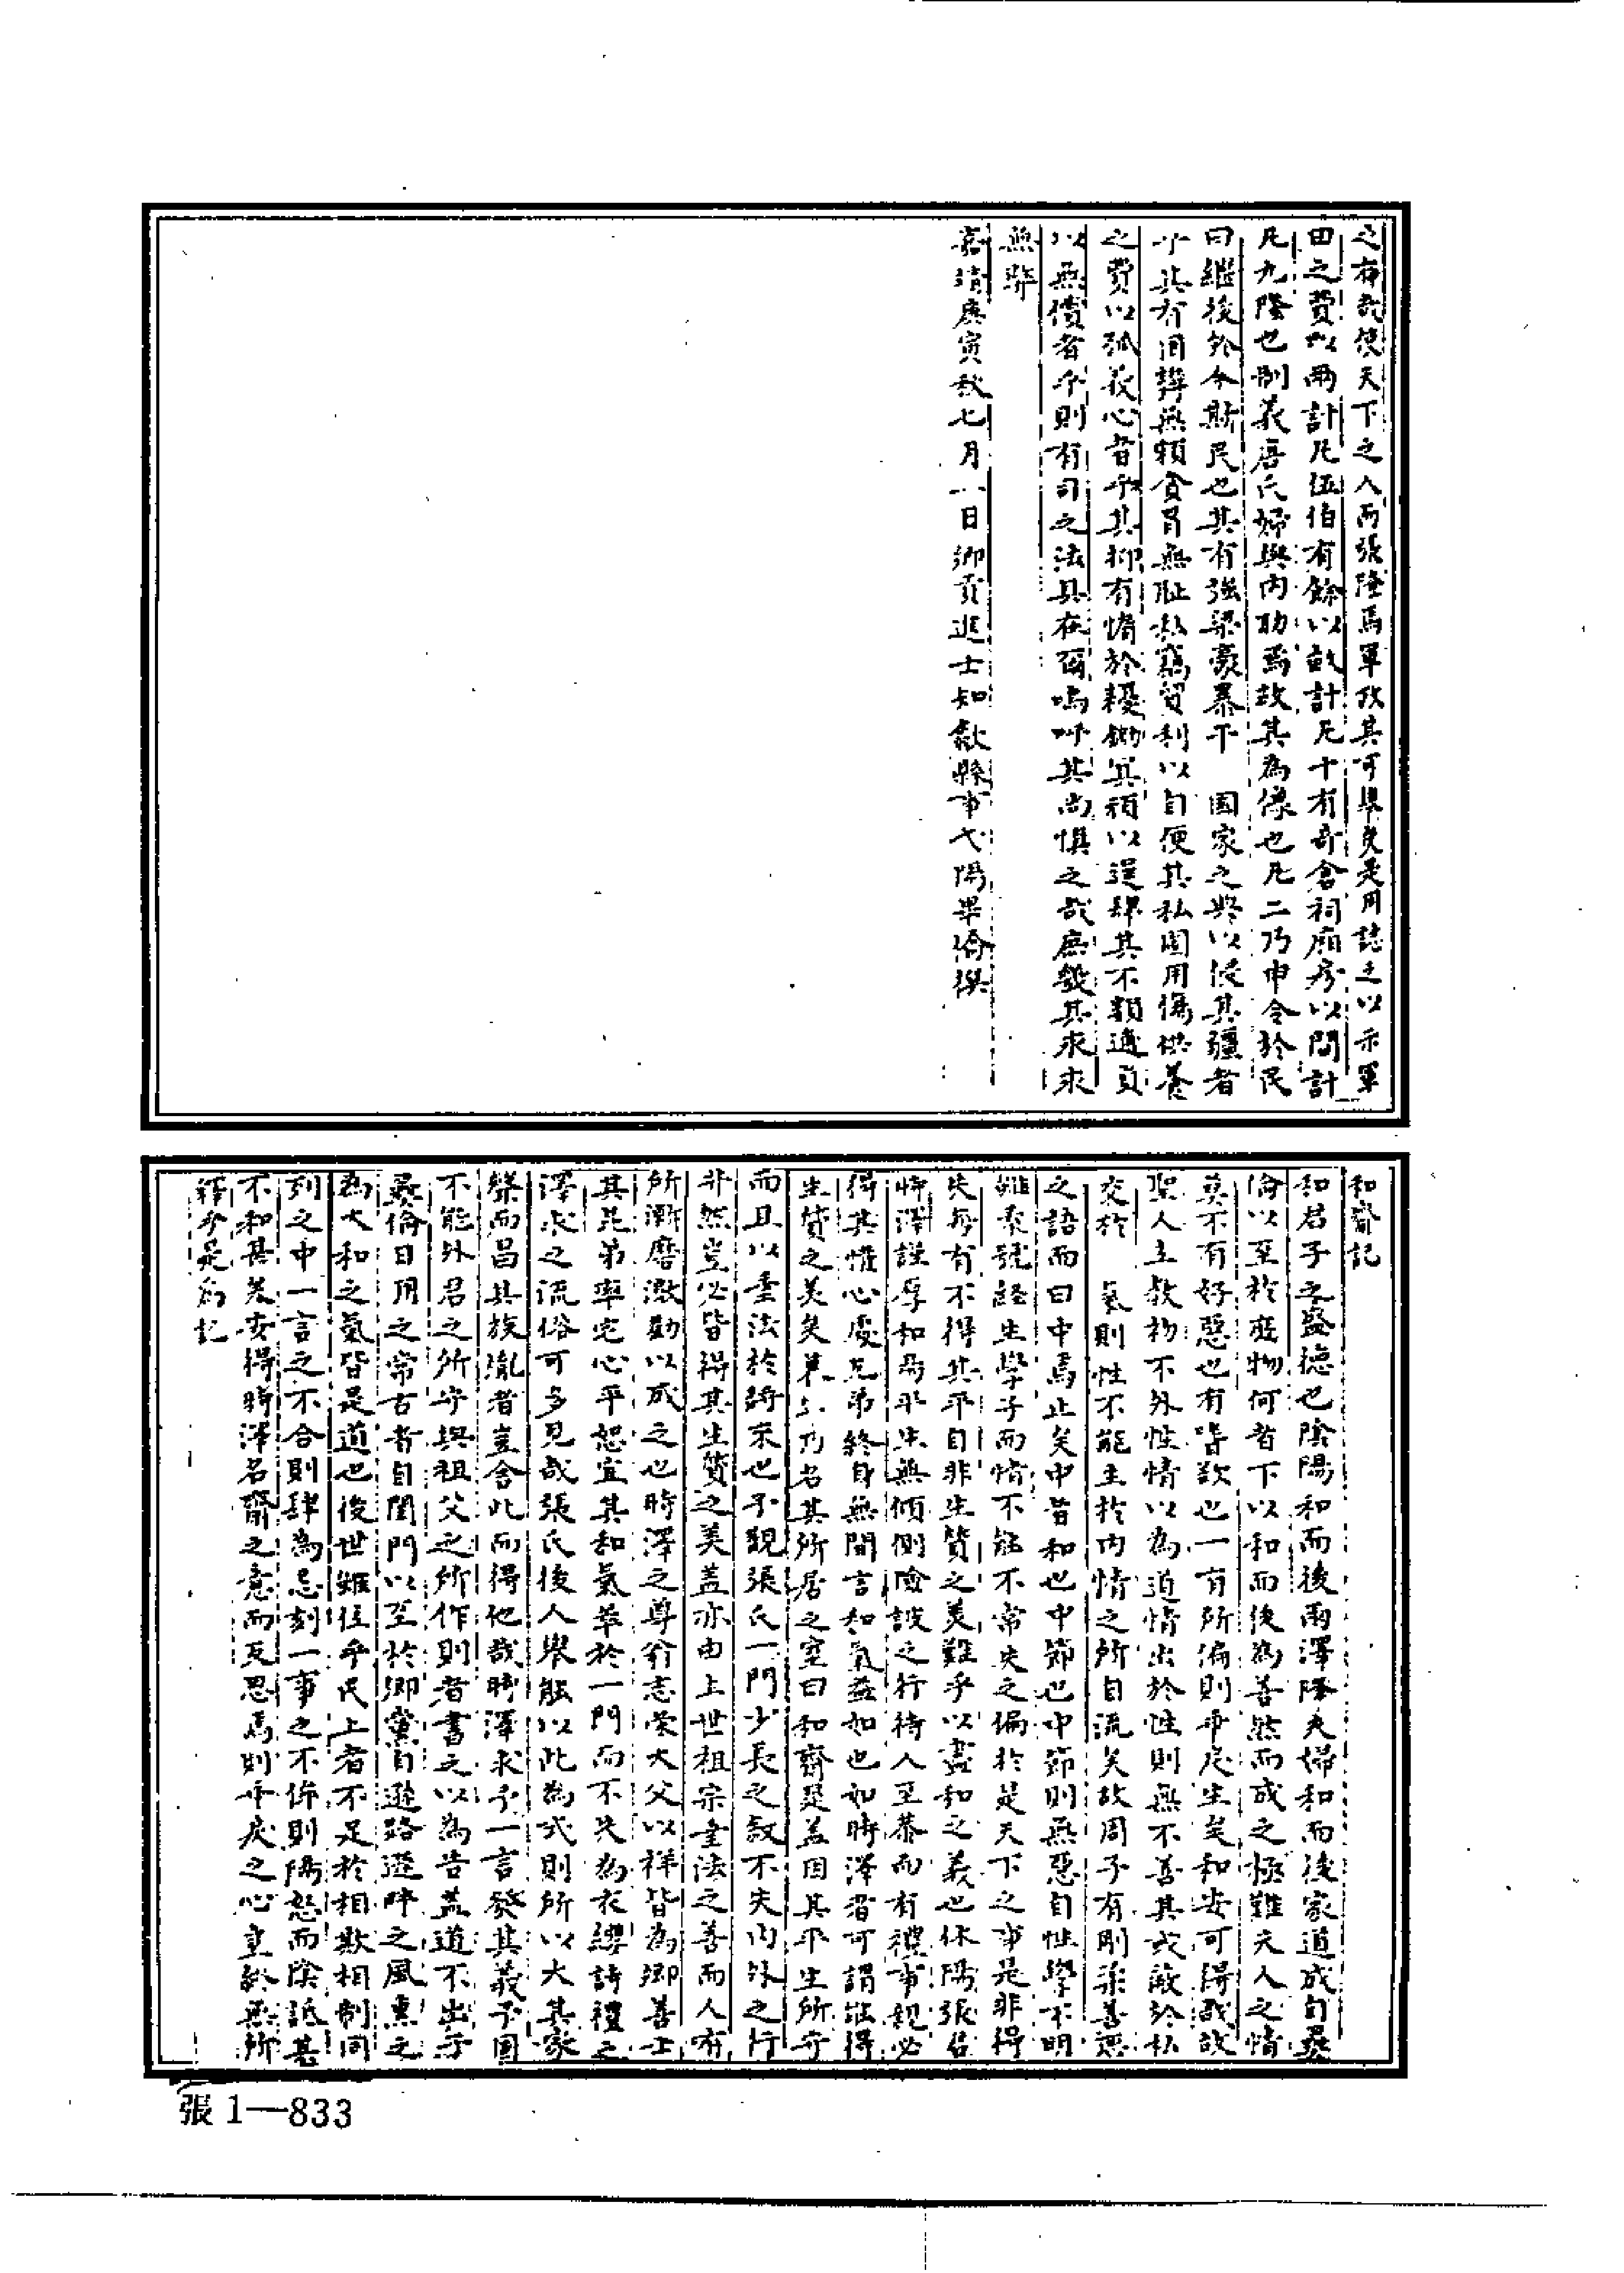 之有哉使天下之人而張隆焉單改其可舉矣是用誌之以示單
田之費以兩計凡伍伯有餘以畝計凡十有奇倉祠廂房以間計
凡九隆也制義唐氏婦與內助焉故其為像也凡二乃申令於民
曰繼後於今斯民也其有強梁豪暴干　國家之典以侵其疆者
乎其有同諱無賴貪冒無耻私竊貿利以自便其私圖用傷供養
之費以孤我心者乎其抑有惰於耨鋤其租以逞肆其不類逋負
以無償者乎則有司之法具在爾嗚呼其尚惧之哉庶幾其永永
無斁
嘉靖庚寅秋七月一日鄉貢進士知歙縣事弋陽畢倫撰
和齋記
和君子之盛德也陰陽和而後雨澤降夫婦和而後家道成自彛
倫以至於庶物何者下以和而後為善然而成之極難夫人之情
莫不有好惡也有嗜欲也一有所偏則乖戾生矣和安可得哉故
聖人立教初不外性情以為道情出於性則無不善其或蔽於私
交於　氣則性不能主於內情之所自流矣故周子有剛柔善惡
之語而曰中焉止矣中者和也中節也中節則無惡自性學不明
雖素號經生學子而情不能不常失之偏於是天下之事是非得
失每有不得其平自非生質之美難乎以盡和之義也休陽張君
時澤謹厚和易平生無傾側險詖之行待人至恭而有禮事親必
得其懽心處兄弟終身無間言和氣益如也如時澤者可謂能得
生質之美矣乃名其所居之室曰和齋是蓋因其平生所守
而且以垂法於將來也予觀張氏一門少長之叙不失內外之行
非然豈必皆得其生質之美蓋亦由上世祖宗垂法之善而人有
所漸磨激勸以成之也時澤之尊翁志榮大父以祥皆為鄉善士
其昆弟率宅心平恕宜其和氣萃於一門而不失為衣纓詩禮之
澤永之流俗可多見哉張氏後人舉能以此為式則所以大其家
聲而昌其族胤者豈舍此而得他哉時澤求予一言發其義予固
不能外君之所守與祖父之所作則者書之以為告蓋道不出乎
彛倫日用之常古者自閨門以至於鄉黨自遜路遜畔之風熏之
為大和之氣皆是道也後世雖位乎民上者不足於相欺相制同
列之中一言之不合則肆為忌刻一事之不侔則陽怒而陰詆甚
不和甚矣安得時澤名齋之意而反思焉則乖戾之心重於無所
是為記
張 1—833